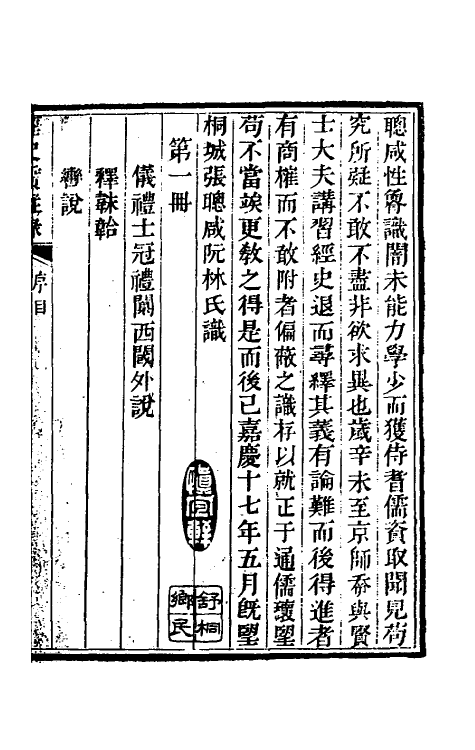 聰咸性魯識闇未能力學少而獲侍耆儒資取聞見苟
究所疑不敢不盡非欲求異也歲辛未至京師忝與賢
士大夫講習經史退而尋繹其義有論難而後得進者
有商榷而不敢附者偏蔽之識存以就正于通儒瓌望
苟不當竢更敎之得是而後已嘉慶十七年五月旣望
桐城張聰咸阮林氏識
第一冊
儀禮士冠禮闑西閾外說
釋韎韐
轡說
經史質疑錄
序目
愼宜軒
舒桐鄉民